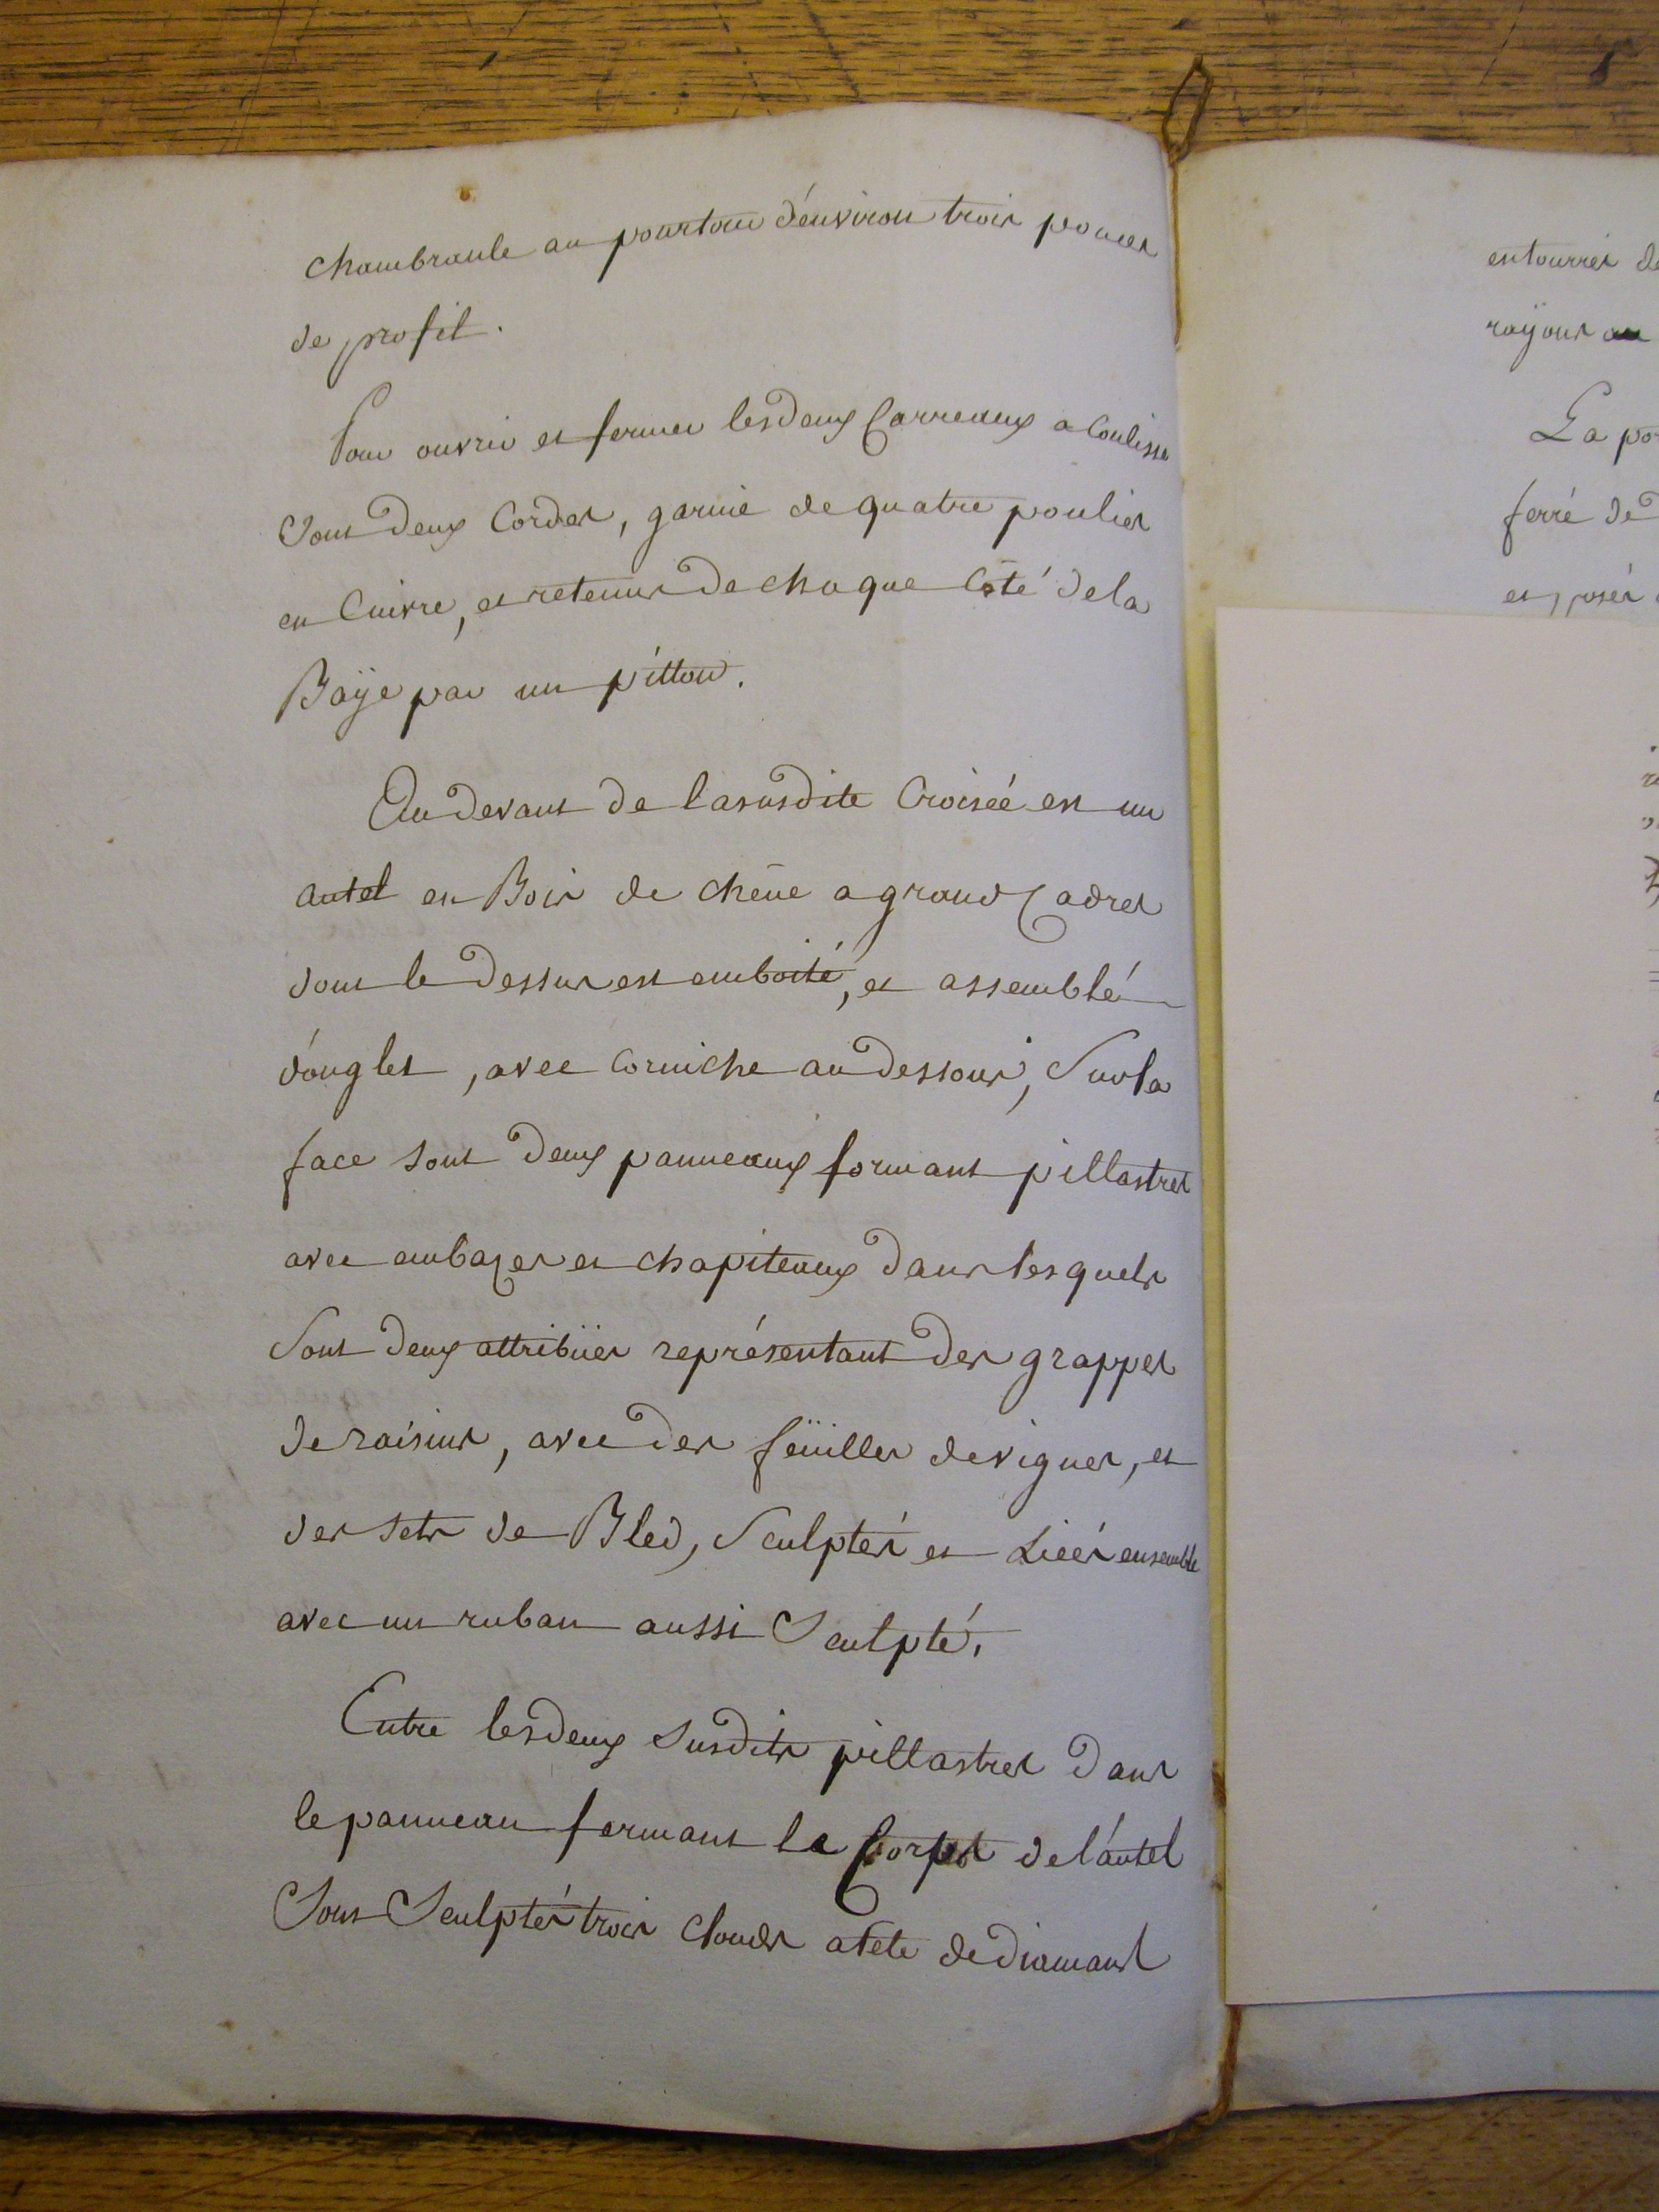 chambranle au pourtour d'environ trois pouces
de profil.
Pour ouvrir et fermer les deux Carreaux a Coulisse
Sont deux Cordes, garnie de quatre poulies
en Cuivre, et retenus de chaque Côté de la
Baÿe par un pitton.
Au devant de la susdite Croisée est un
autel en Bois de chêne a grand Cadres
dont le dessus est emboité, et assemblé
d'onglet, avec Corniche au dessous, Sur la
face sont deux panneaux formant pillastres
avec embazes et chapiteaux dans lesquels
Sont deux attribües représentant des grappes
de raisins, avec des feüilles de vignes, et
des de Bled, Sculptés et Liées ensemble
avec un ruban aussi Sculpté.
Entre les deux susdits pillastres dans
le panneau formant le Corps de l'autel
Sont Sculptés trois clouds a tete de diamant
entourrés de
rayons au
La
ferré de
et posés